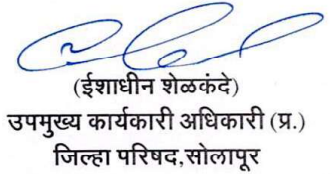 (ईशाधीन शेळकंदे)
उपमुख्य कार्यकारी अधिकारी (प्र.)
जिल्हा परिषद,सोलापूर